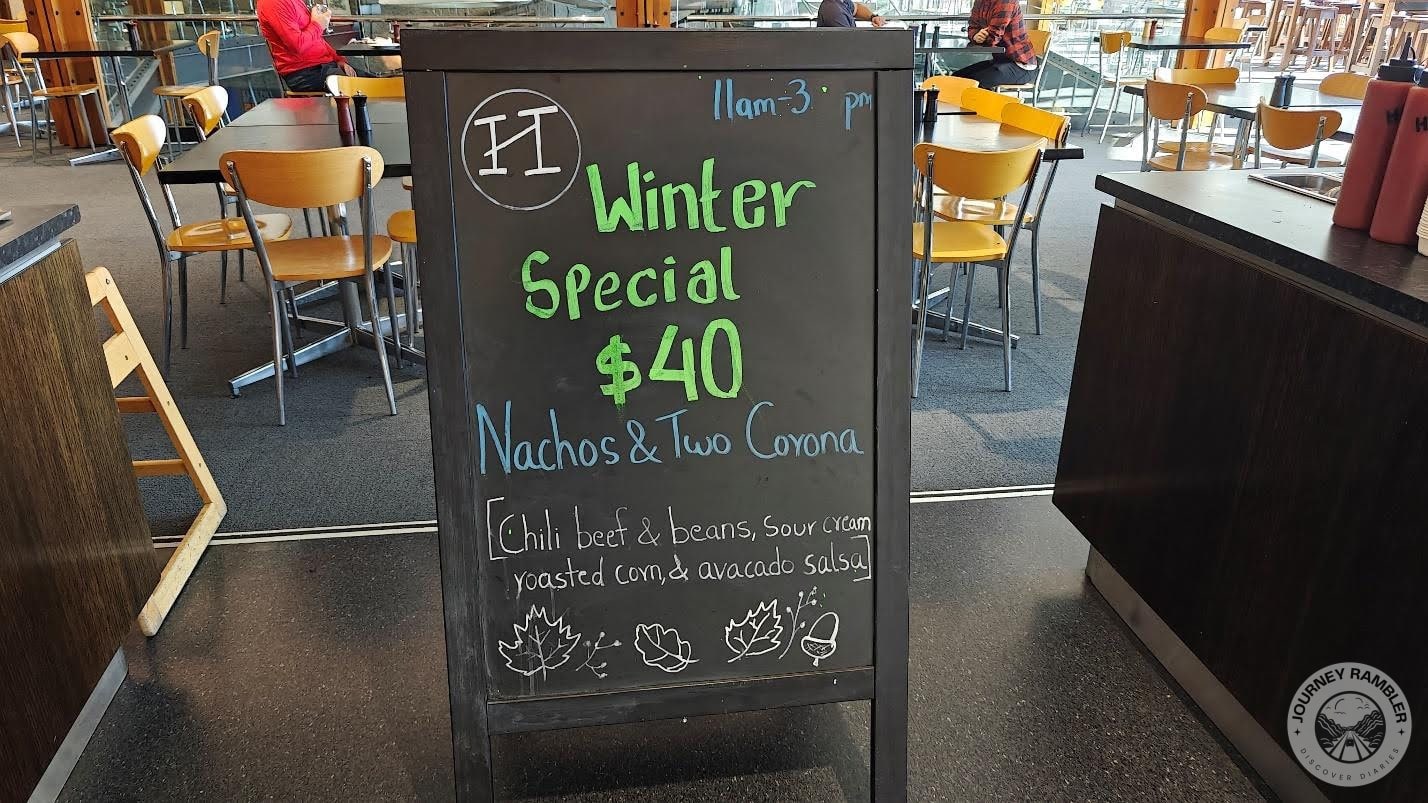 11am-3 pm
Winter
Special
$40
Nachos & Two Corona
[Chili beef & beans, sour cream
roasted corn, & avacado salsa]
JOURNEY RAMBLER
• DISCOVER DIARIES •